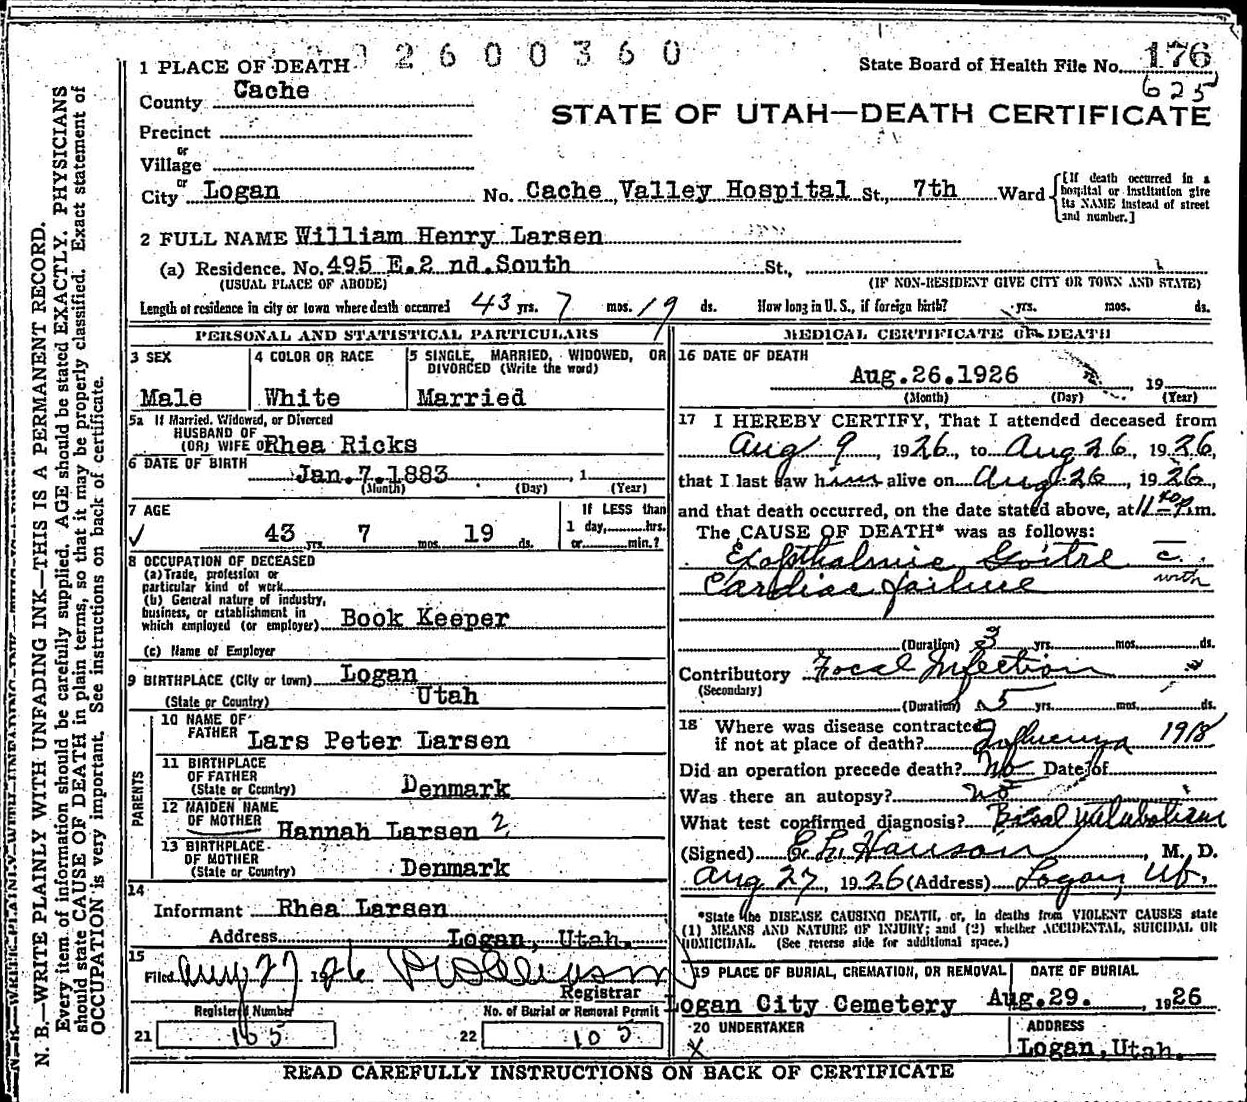 2600360
1 PLACE OF DEATH
State Board of Health File No. 176
625
County Cache
STATE OF UTAH—DEATH CERTIFICATE
Precinct
or
Village
or
City Logan No. Cache Valley Hospital St., 7th Ward
[If death occurred in a hospital or institution give its NAME instead of street and number.]
2 FULL NAME William Henry Larsen
(a) Residence. No. 495 E.2 nd.South St.,
(USUAL PLACE OF ABODE) (IF NON-RESIDENT GIVE CITY OR TOWN AND STATE)
Length of residence in city or town where death occurred 43 yrs. 7 mos. 19 ds. How long in U. S., if foreign birth? yrs. mos. ds.
PERSONAL AND STATISTICAL PARTICULARS
3 SEX
Male
4 COLOR OR RACE
White
5 SINGLE, MARRIED, WIDOWED, OR
DIVORCED (Write the word)
Married
5a If Married, Widowed, or Divorced
HUSBAND OF
(OR) WIFE OF Rhea Ricks
6 DATE OF BIRTH
Jan.7.1883 , 1
(Month) (Day) (Year)
7 AGE
43 yrs. 7 mos. 19 ds.
If LESS than
1 day, hrs.
or min.?
8 OCCUPATION OF DECEASED
(a) Trade, profession or
particular kind of work
(b) General nature of industry,
business, or establishment in
which employed (or employer) Book Keeper
(c) Name of Employer
9 BIRTHPLACE (City or town) Logan
(State or Country) Utah
PARENTS
10 NAME OF
FATHER Lars Peter Larsen
11 BIRTHPLACE
OF FATHER
(State or Country) Denmark
12 MAIDEN NAME
OF MOTHER Hannah Larsen 2
13 BIRTHPLACE
OF MOTHER
(State or Country) Denmark
14
Informant Rhea Larsen
Address Logan, Utah.
15
Filed Aug 27 1926
Registrar
Registered Number
21 165
No. of Burial or Removal Permit
22 105
MEDICAL CERTIFICATE OF DEATH
16 DATE OF DEATH
Aug.26.1926 , 19
(Month) (Day) (Year)
17 I HEREBY CERTIFY, That I attended deceased from
Aug 9, 1926, to Aug 26, 1926,
that I last saw him alive on Aug 26, 1926,
and that death occurred, on the date stated above, at p.m.
The CAUSE OF DEATH* was as follows:
Exopthalmic Goitre c.
Cardiac failure with
(Duration) 3 yrs. mos. ds.
Contributory Focal Infection
(Secondary)
(Duration) 5 yrs. mos. ds.
18 Where was disease contracted
if not at place of death? Influenza 1918
Did an operation precede death? No Date of
Was there an autopsy? no
What test confirmed diagnosis? Basal Metabolism
(Signed) Hanson, M. D.
Aug 27, 1926 (Address) Logan, Ut.
*State the DISEASE CAUSING DEATH, or, in deaths from VIOLENT CAUSES state
(1) MEANS AND NATURE OF INJURY; and (2) whether ACCIDENTAL, SUICIDAL OR
HOMICIDAL. (See reverse side for additional space.)
19 PLACE OF BURIAL, CREMATION, OR REMOVAL
Logan City Cemetery
DATE OF BURIAL
Aug.29. , 1926
20 UNDERTAKER
X
ADDRESS
Logan, Utah.
READ CAREFULLY INSTRUCTIONS ON BACK OF CERTIFICATE
N. B.—WRITE PLAINLY WITH UNFADING INK—THIS IS A PERMANENT RECORD.
Every item of information should be carefully supplied. AGE should be stated EXACTLY. PHYSICIANS
should state CAUSE OF DEATH in plain terms, so that it may be properly classified. Exact statement of
OCCUPATION is very important. See instructions on back of certificate.